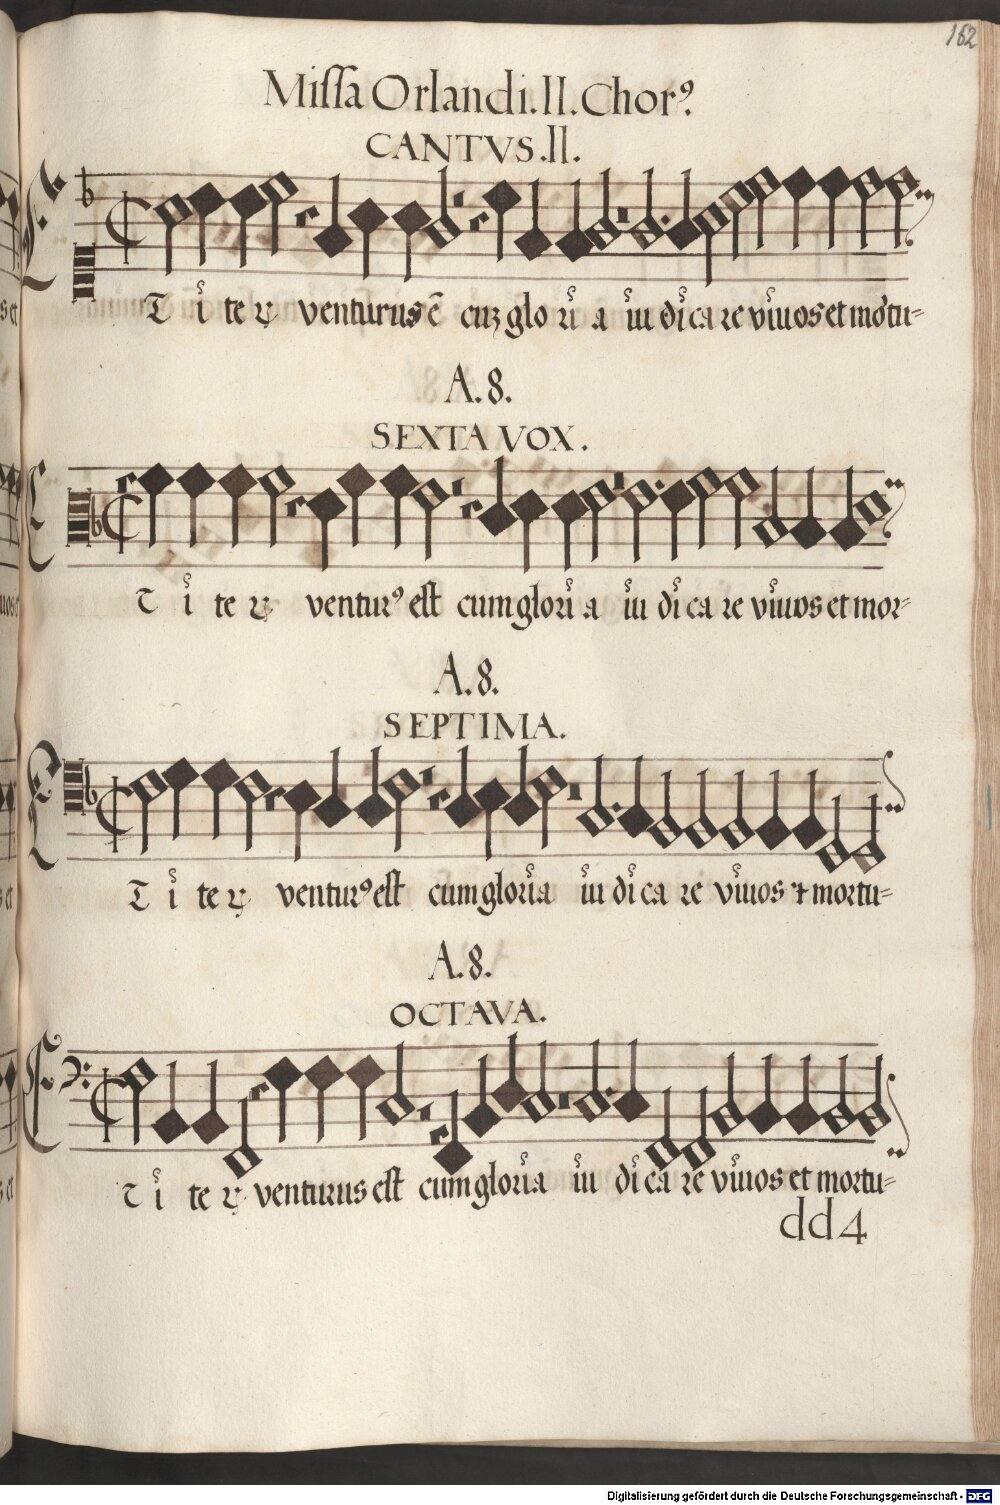 162
Missa Orlandi. II. Chorꝰ
CANTVS. II.
ET i te ꝝ venturus ē cuꝫ glo ri a iu di ca re viuos et mortu=
A. 8.
SEXTA VOX.
ET i te ꝝ venturꝰ est cum glori a iu di ca re viuos et mor=
A. 8.
SEPTIMA.
ET i te ꝝ venturꝰ est cum gloria iu di ca re viuos et mortu=
A. 8.
OCTAVA.
ET i te ꝝ venturus est cum gloria iu di ca re viuos et mortu=
dd4
Digitalisierung gefördert durch die Deutsche Forschungsgemeinschaft - DFG